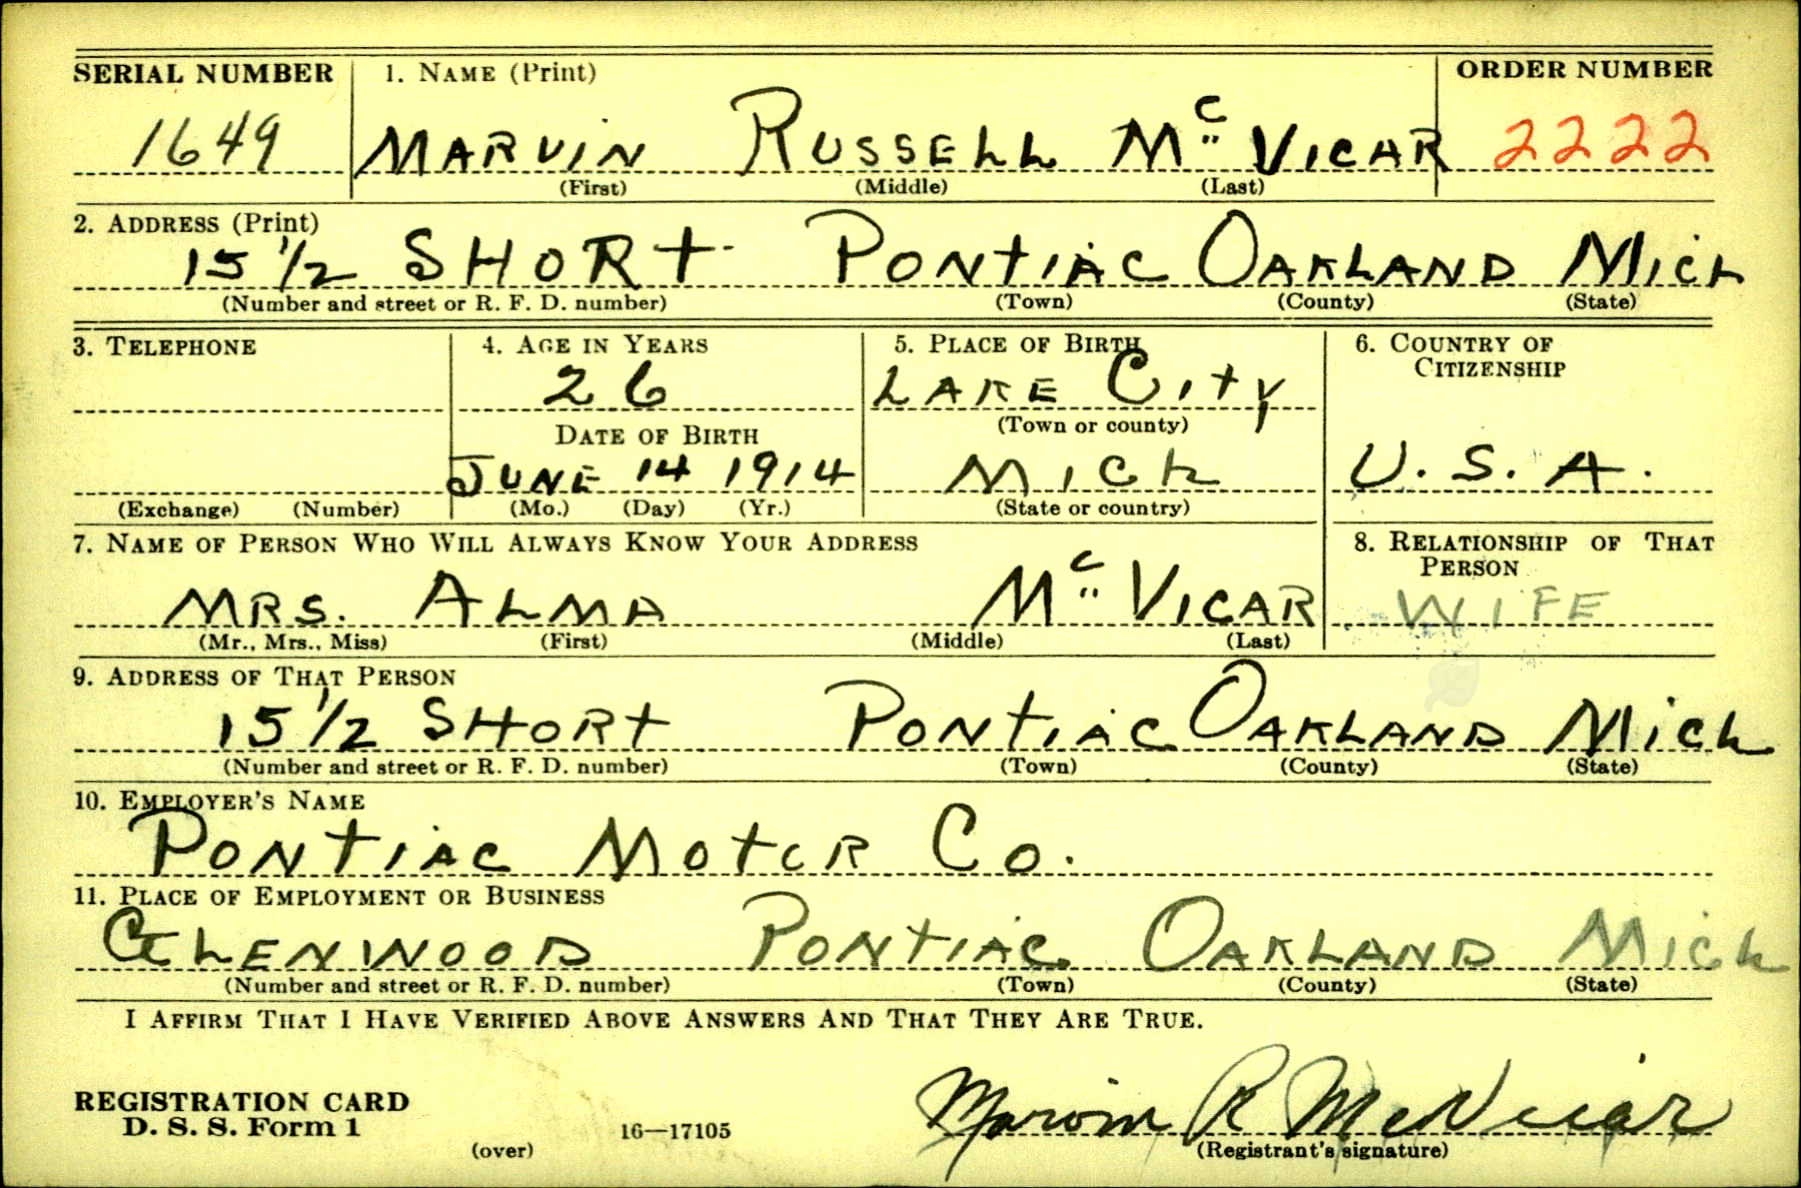 SERIAL NUMBER 1. NAME (Print) ORDER NUMBER
1649 MARVIN RUSSELL McVICAR 2222
(First) (Middle) (Last)
2. ADDRESS (Print)
15 1/2 SHORT PONTIAC OAKLAND MICH
(Number and street or R. F. D. number) (Town) (County) (State)
3. TELEPHONE 4. AGE IN YEARS 5. PLACE OF BIRTH 6. COUNTRY OF
CITIZENSHIP
26 LAKE CITY
DATE OF BIRTH (Town or county)
JUNE 14 1914 MICH U.S.A.
(Exchange) (Number) (Mo.) (Day) (Yr.) (State or country)
7. NAME OF PERSON WHO WILL ALWAYS KNOW YOUR ADDRESS 8. RELATIONSHIP OF THAT
PERSON
MRS. ALMA McVICAR WIFE
(Mr., Mrs., Miss) (First) (Middle) (Last)
9. ADDRESS OF THAT PERSON
15 1/2 SHORT PONTIAC OAKLAND MICH
(Number and street or R. F. D. number) (Town) (County) (State)
10. EMPLOYER'S NAME
PONTIAC MOTOR CO.
11. PLACE OF EMPLOYMENT OR BUSINESS
GLENWOOD PONTIAC OAKLAND MICH
(Number and street or R. F. D. number) (Town) (County) (State)
I AFFIRM THAT I HAVE VERIFIED ABOVE ANSWERS AND THAT THEY ARE TRUE.
REGISTRATION CARD
D. S. S. Form 1 Marvin R McVicar
(over) 16—17105 (Registrant's signature)